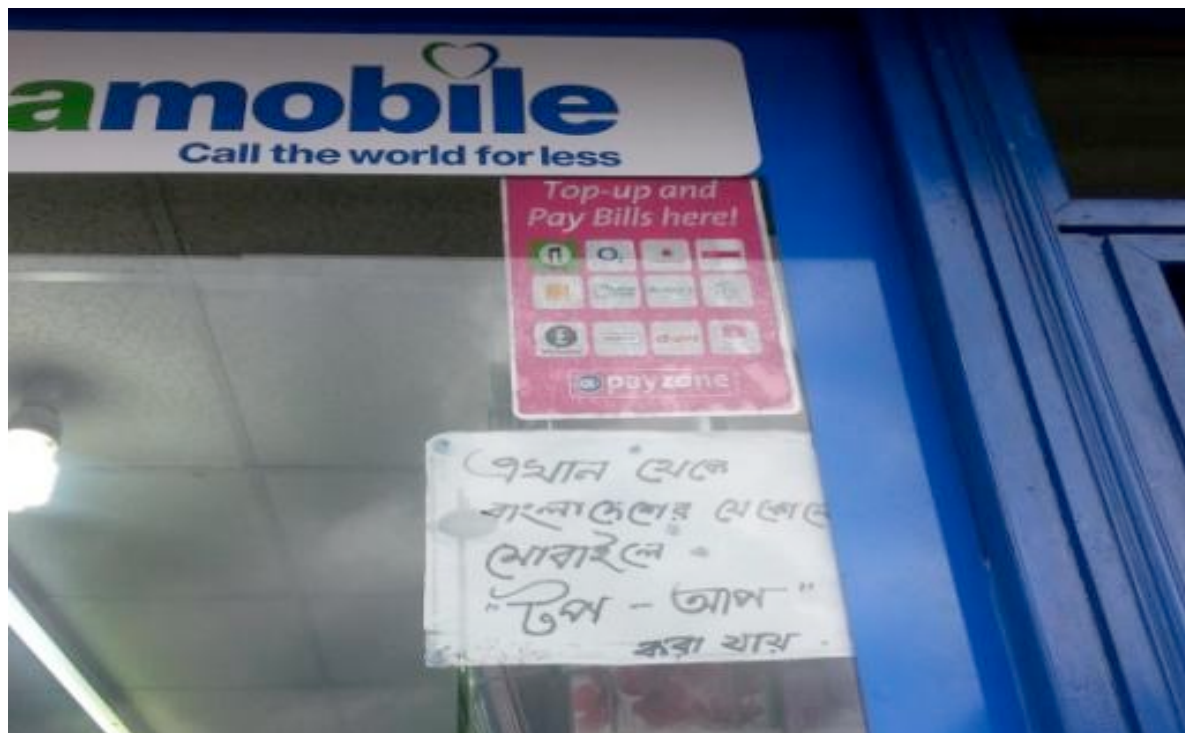 amobile
Call the world for less
Top-up and
Pay Bills here!
O2
payzone
এখান থেকে
বাংলাদেশের যে কোনো
মোবাইলে
"টপ - আপ"
করা যায়.